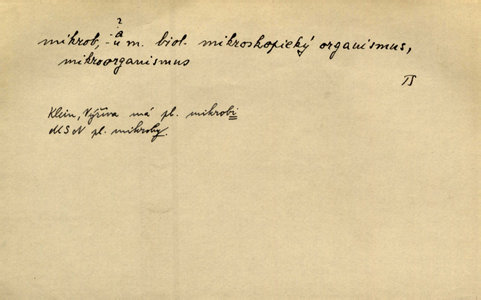 ?
a
mikrob, -u m. biol. mikroskopický organismus,
mikroorganismus
TS
Klein, Výživa má pl. mikrobi
MSN pl. mikroby.